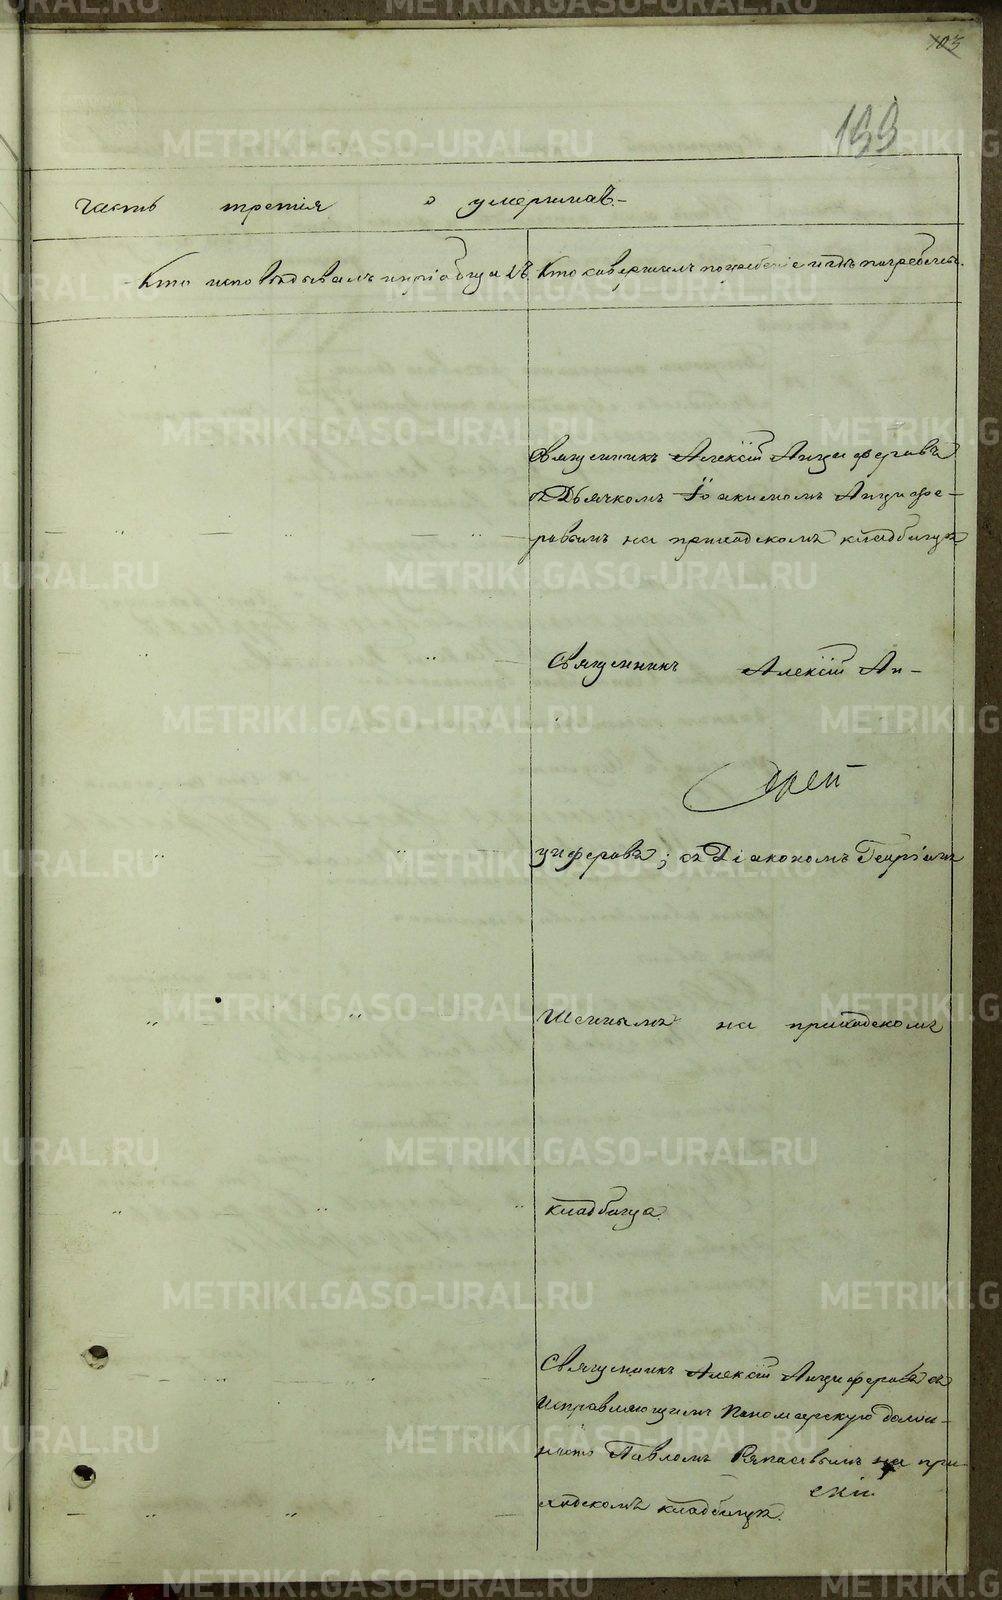 103
199
Часть третія о умершихъ.
Кто исповѣдывалъ и пріобщалъ. Кто совершалъ погребеніе и гдѣ погребены.
Священникъ Алексій Анциферовъ
съ Дьячкомъ Іоакимомъ Анцифе-
ровымъ на приходскомъ кладбищѣ
Священникъ Алексій Ан-
циферовъ; съ Діакономъ Георгіемъ
на приходскомъ
кладбищѣ.
Священникъ Алексій Анциферовъ съ
исправляющимъ пономарскую долж-
ность Павломъ на при-
ходскомъ кладбищѣ.
METRIKI.GASO-URAL.RU